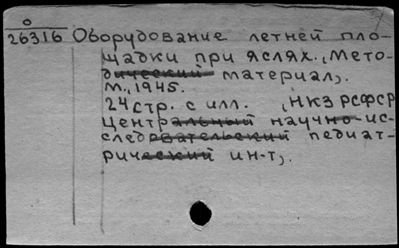 О
26316 Оборудование летней пло-
щадки при яслях. (Мето-
дический материал).
М., 1945.
24 стр. с илл. (НКЗ РСФСР
Центральный научно-ис-
следовательский педиат-
рический ин-т).